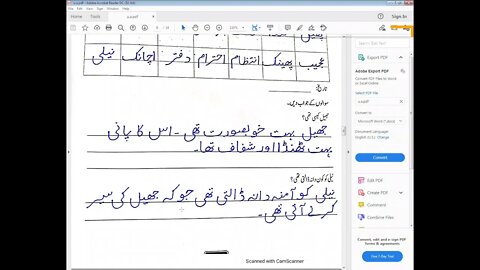 u.a.pdf - Adobe Acrobat Reader DC (32-bit)
File Edit View Sign Window Help
Home Tools
Sign In
عجیب پھینک انتظام احترام دفتر اچانک نیلی
تاریخ:
سوالوں کے جواب دیں۔
جھیل کیسی تھی؟
جھیل بہت خوبصورت تھی۔ اس کا پانی
بہت ٹھنڈا اور شفاف تھا۔
نیلی کو کون دانہ ڈالتی تھی؟
نیلی کو آمنہ دانہ ڈالتی تھی جو کہ جھیل کی سیر
کرنے آئی تھی۔
Scanned with CamScanner
Export PDF
Adobe Export PDF
Convert PDF Files to Word
or Excel Online
Select PDF File
Convert to
Microsoft Word (*.docx)
Document Language:
English (U.S.) Change
Convert
Edit PDF
Create PDF
Comment
Combine Files
Convert, edit and e-sign PDF
forms & agreements
Free 7-Day Trial